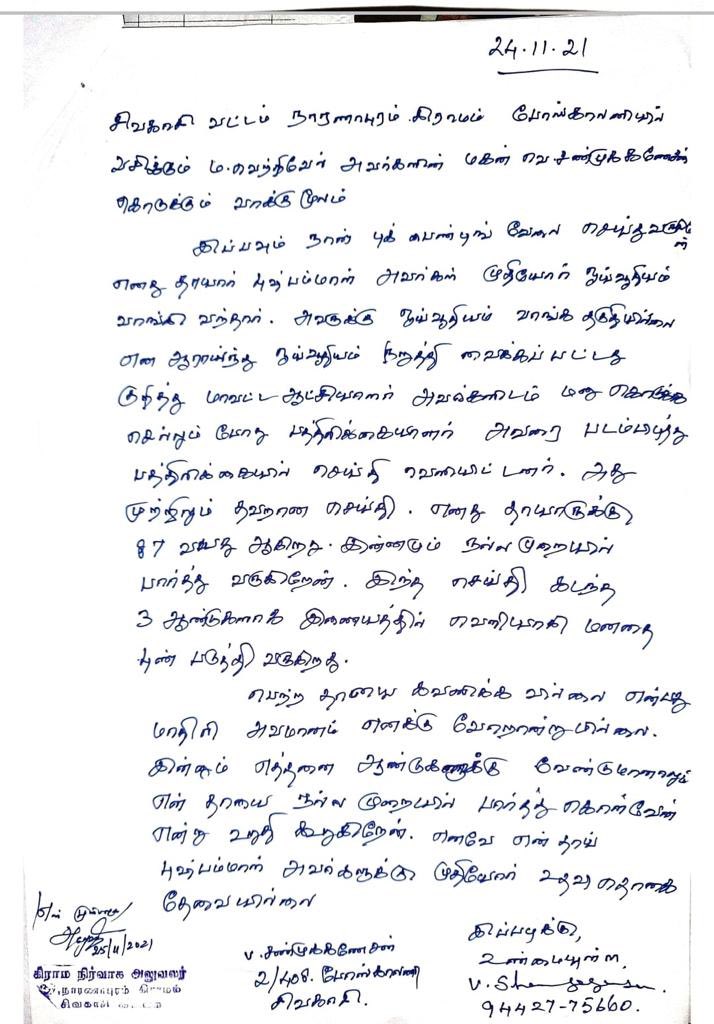 24.11.21
சிவகாசி வட்டம் நாரணாபுரம் கிராமம் போஸ்காலனியில்
வசிக்கும் ம.வெற்றிவேல் அவர்களின் மகன் வெ.சண்முக்கணேசன்
கொடுக்கும் வாக்கு மூலம்
இப்பவும் நான் புக் பைண்டிங் வேலை செய்து வருகிறேன்
எனது தாயார் புஷ்பம்மாள் அவர்கள் முதியோர் ஓய்வூதியம்
வாங்கி வந்தார். அவருக்கு ஓய்வூதியம் வாங்க தகுதியில்லை
என ஆராய்ந்து ஓய்வூதியம் நிறுத்தி வைக்கப் பட்டது
குறித்து மாவட்ட ஆட்சியாளர் அவர்களிடம் மனு கொடுக்க
செல்லும் போது பத்திரிக்கையாளர் அவரை படம்பிடித்து
பத்திரிக்கையில் செய்தி வெளியிட்டனர். அது
முற்றிலும் தவறான செய்தி. எனது தாயாருக்கு
87 வயது ஆகிறது. இன்னமும் நல்ல முறையில்
பார்த்து வருகிறேன். இந்த செய்தி கடந்த
3 ஆண்டுகளாக இணையத்தில் வெளியாகி மனதை
புண் படுத்தி வருகிறது.
பெற்ற தாயை கவனிக்க வில்லை என்பது
மாதிரி அவமானம் எனக்கு வேறொன்றுமில்லை.
இன்னும் எத்தனை ஆண்டுகளுக்கு வேண்டுமானாலும்
என் தாயை நல்ல முறையில் பார்த்து கொள்வேன்
என்று உறுதி கூறுகிறேன். எனவே என் தாய்
புஷ்பம்மாள் அவர்களுக்கு முதியோர் உதவி தொகை
தேவையில்லை
25/11/2021
கிராம நிர்வாக அலுவலர்
நாரணாபுரம் கிராமம்
சிவகாசி
வ.சண்முக்கணேசன்
2/408. போஸ்காலனி
சிவகாசி.
இப்படிக்கு,
உண்மையுள்ள,
94427-75660.